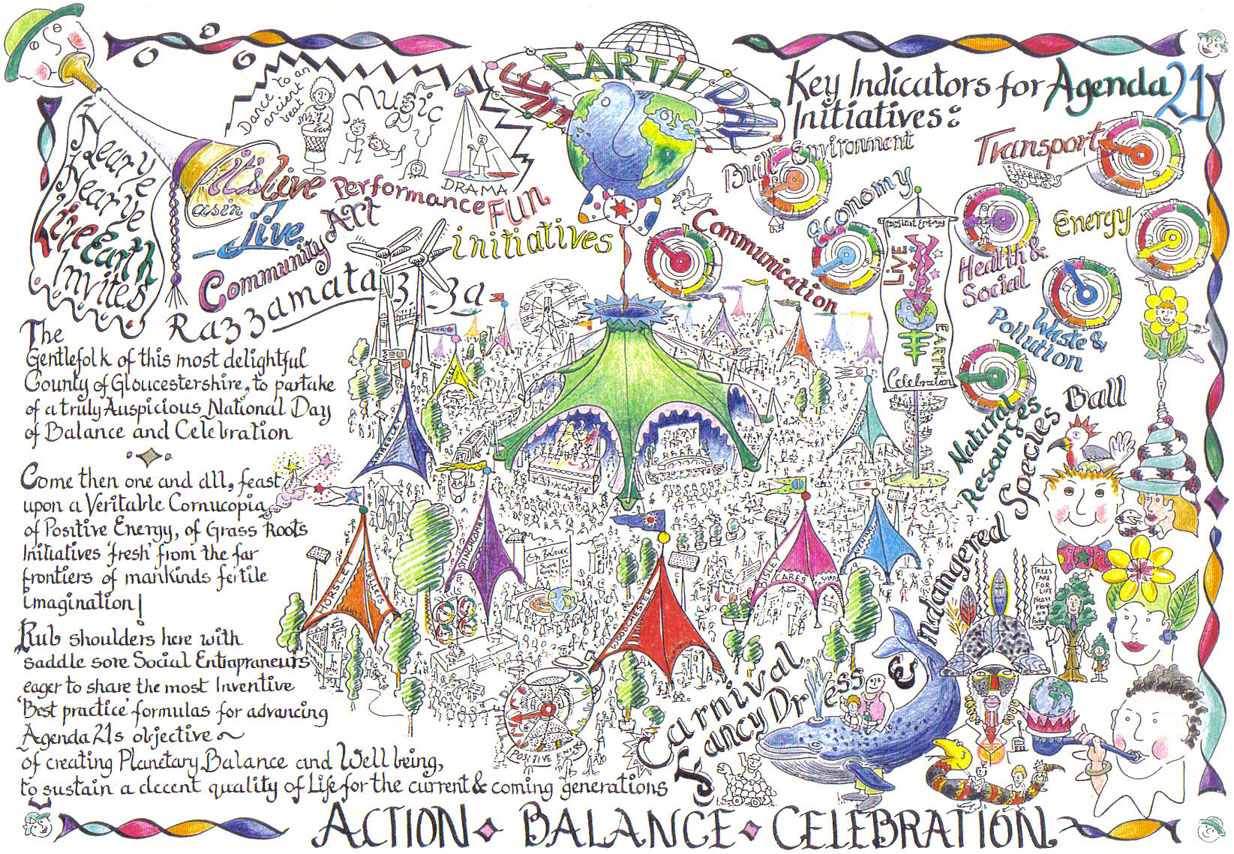 LIVE EARTH DAY
Dance to an
ancient
beat
Music
DRAMA
Heary
Hearye
Live Earth
Invites
It's Live
as in
Live
Performance FUN
Community ART
initiatives
Razzamatazzza
The
Gentlefolk of this most delightful
County of Gloucestershire, to partake
of a truly Auspicious National Day
of Balance and Celebration
Come then one and all, feast
upon a Veritable Cornucopia
of Positive Energy, of Grass Roots
Initiatives 'fresh' from the far
frontiers of mankinds fertile
imagination!
Rub shoulders here with
saddle sore Social Entrapreneurs
eager to share the most Inventive
'Best practice' formulas for advancing
Agenda 21s objective ~
~of creating Planetary Balance and Well being,
to sustain a decent quality of Life for the current & coming generations
Key Indicators for Agenda 21
Initiatives:
Built Environment
Transport
Economy
Communication
Energy
Health &
Social
Waste &
Pollution
Natural
Resources
LIVE
EARTH
Celebration
Endangered Species Ball
&
Carnival
Fancy Dress
TREES
ARE
FOR
LIFE
GLOUCESTER
POSITIVE
ACTION BALANCE CELEBRATION